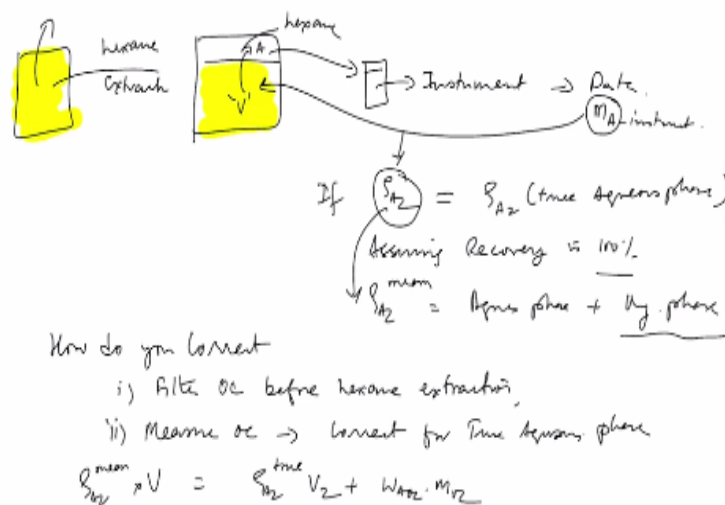 hexane
hexane
Extract
A
"V"
Instrument → Data
m_A-instrument.
If ρ_A2 = ρ_A2 (true Aqueous phase)
Assuming Recovery is 100%
ρ_A2^mean = Aqueous phase + Org. phase
How do you Correct
i) Filter OC before hexane extraction,
ii) Measure OC → Correct for True Aqueous phase
ρ_A2^mean × V = ρ_A2^true V_2 + W_A02 · m_02